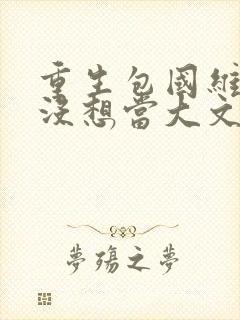 重生包國維
沒想當大文
夢殤之夢